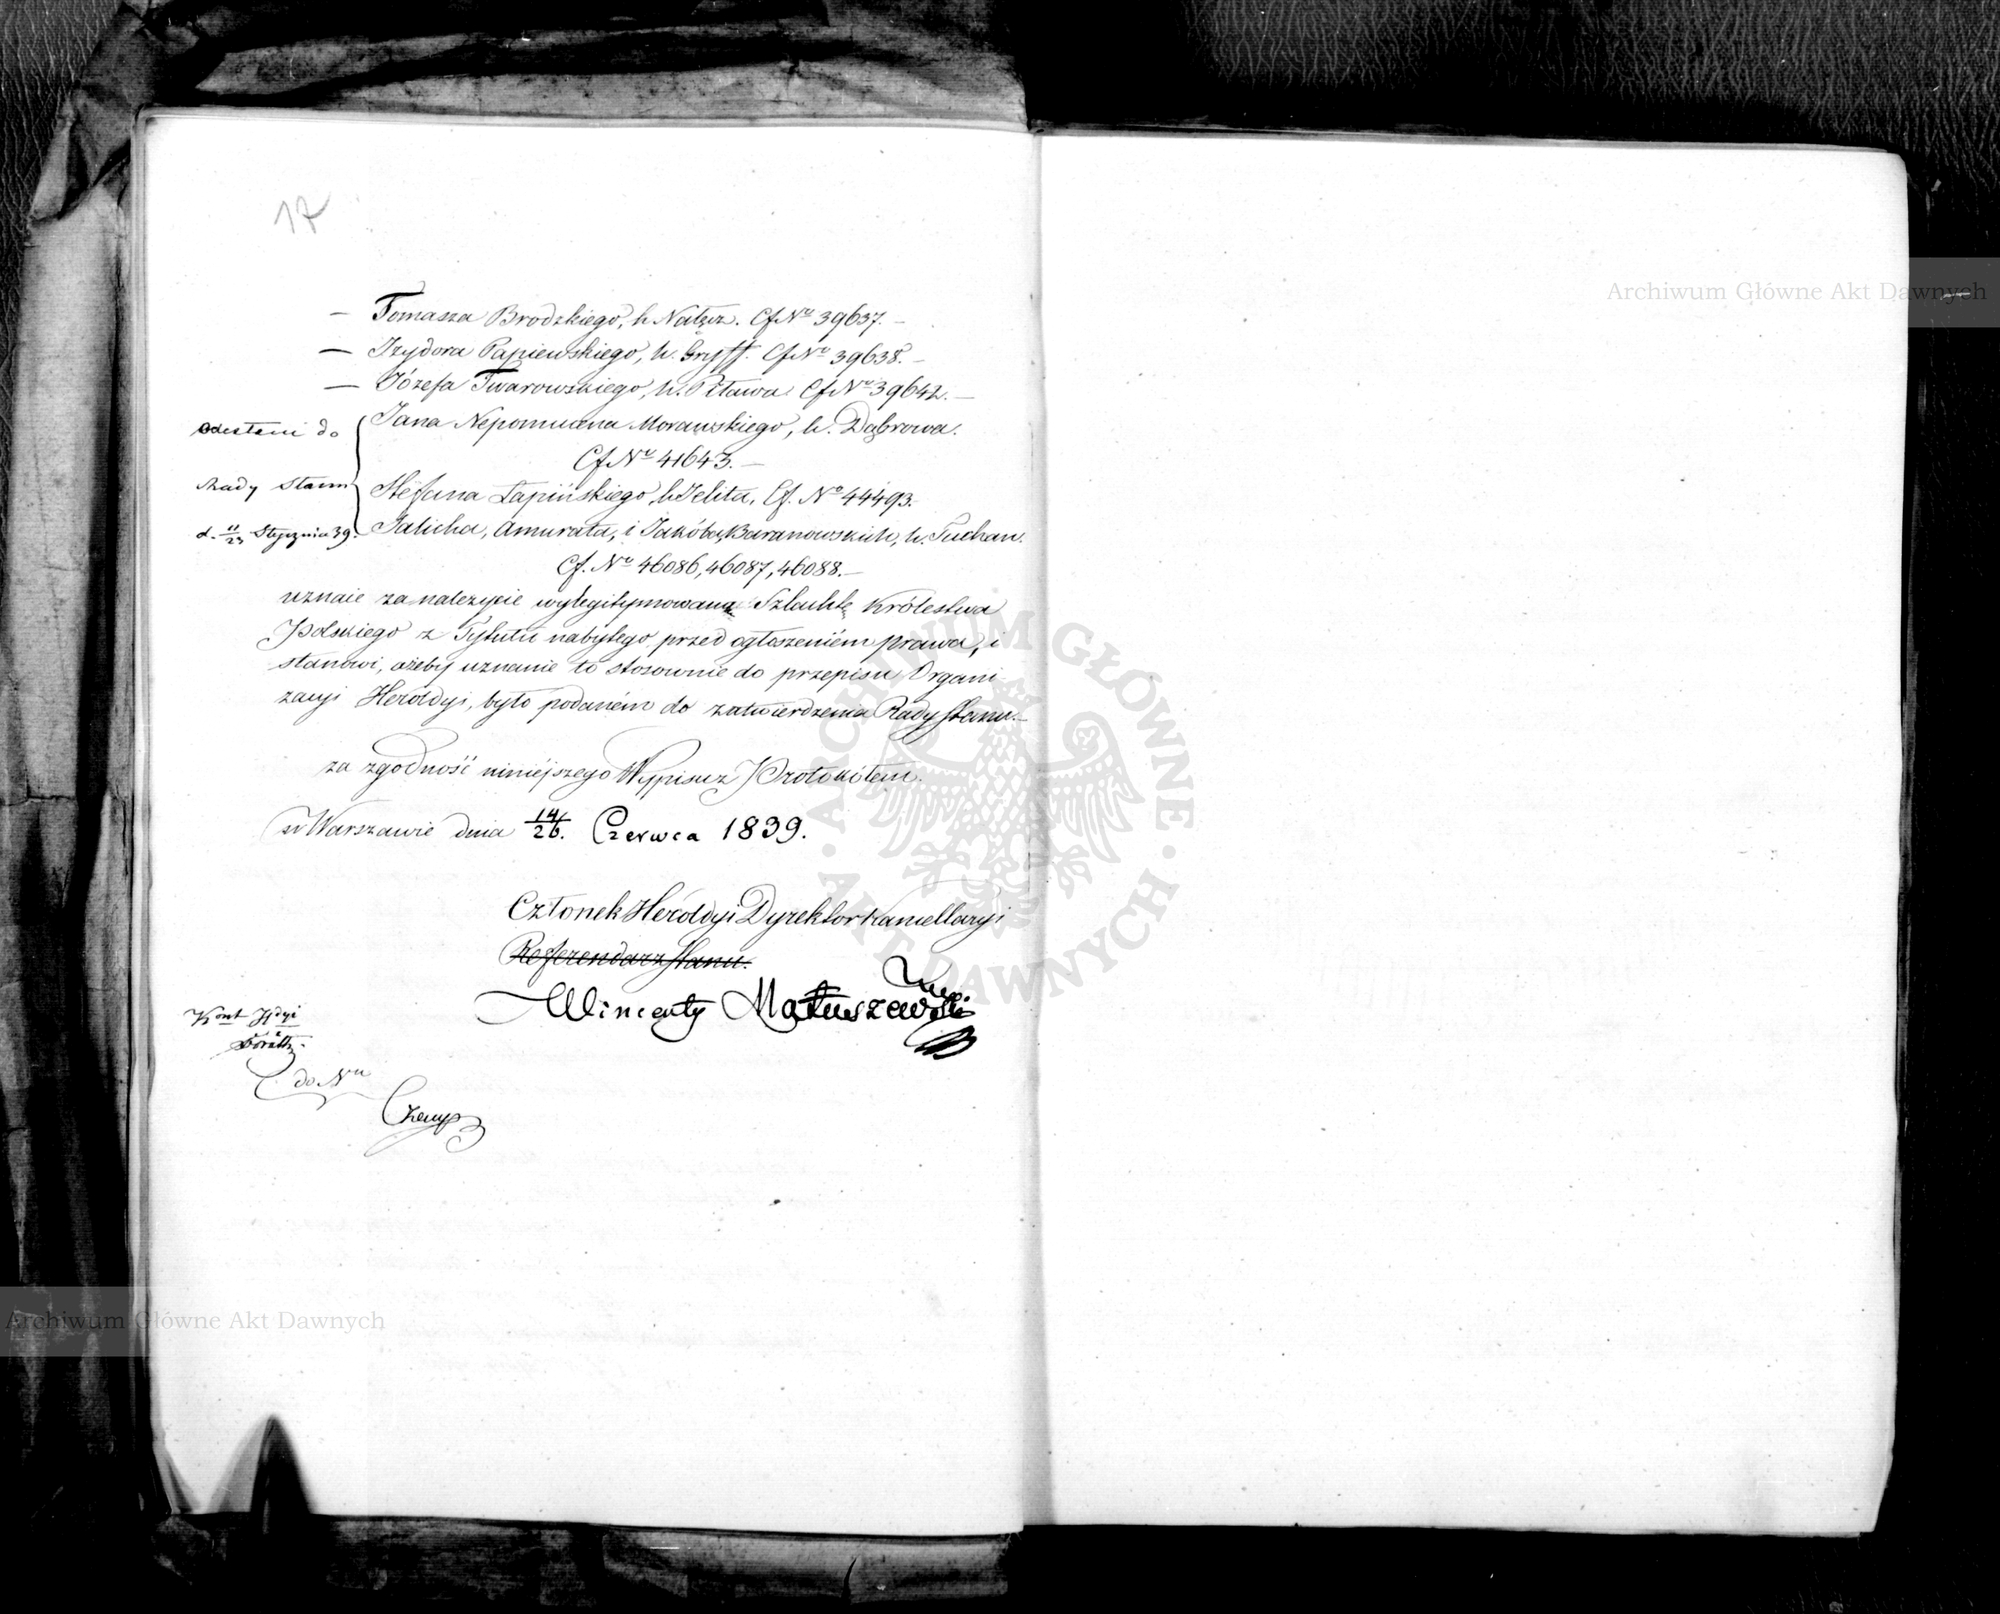 17
— Tomasza Brodzkiego, h. Nałęcz. Cf Nº 39637. —
— Izydora Papiewskiego, h. Gryff. Cf Nº 39638. —
— Józefa Twarowskiego, h. Pilawa Cf Nº 39642. —
Jana Nepomucena Morawskiego, h. Dąbrowa.
Cf Nº 41643. —
Stefana Łapińskiego, h. Jelita, Cf. Nº 44493.
Odesłani do
Rady Stanu
d. 11/23 Stycznia 39.
Salicha, Amurata, i Jakóba, Baranowskich, h. Tuhan.
Cf. Nº 46086, 46087, 46088. —
uznaie za należycie wylegitymowaną Szlachtę Królestwa
Polskiego z Tytułu nabytego przed ogłoszeniem prawa, i
stanowi, ażeby uznanie to stosownie do przepisu Organi
zacyi Heroldyi, było podaném do zatwierdzenia Rady Stanu. —
za zgodność niniejszego Wypisu z Protokółem.
w Warszawie dnia 14/26. Czerwca 1839.
Członek Heroldyi Dyrektor Kancellaryi
Referendarz Stanu.
Wincenty Matuszewski
do Nu
Archiwum Główne Akt Dawnych
Archiwum Główne Akt Dawnych
ARCHIWUM GŁÓWNE AKT DAWNYCH